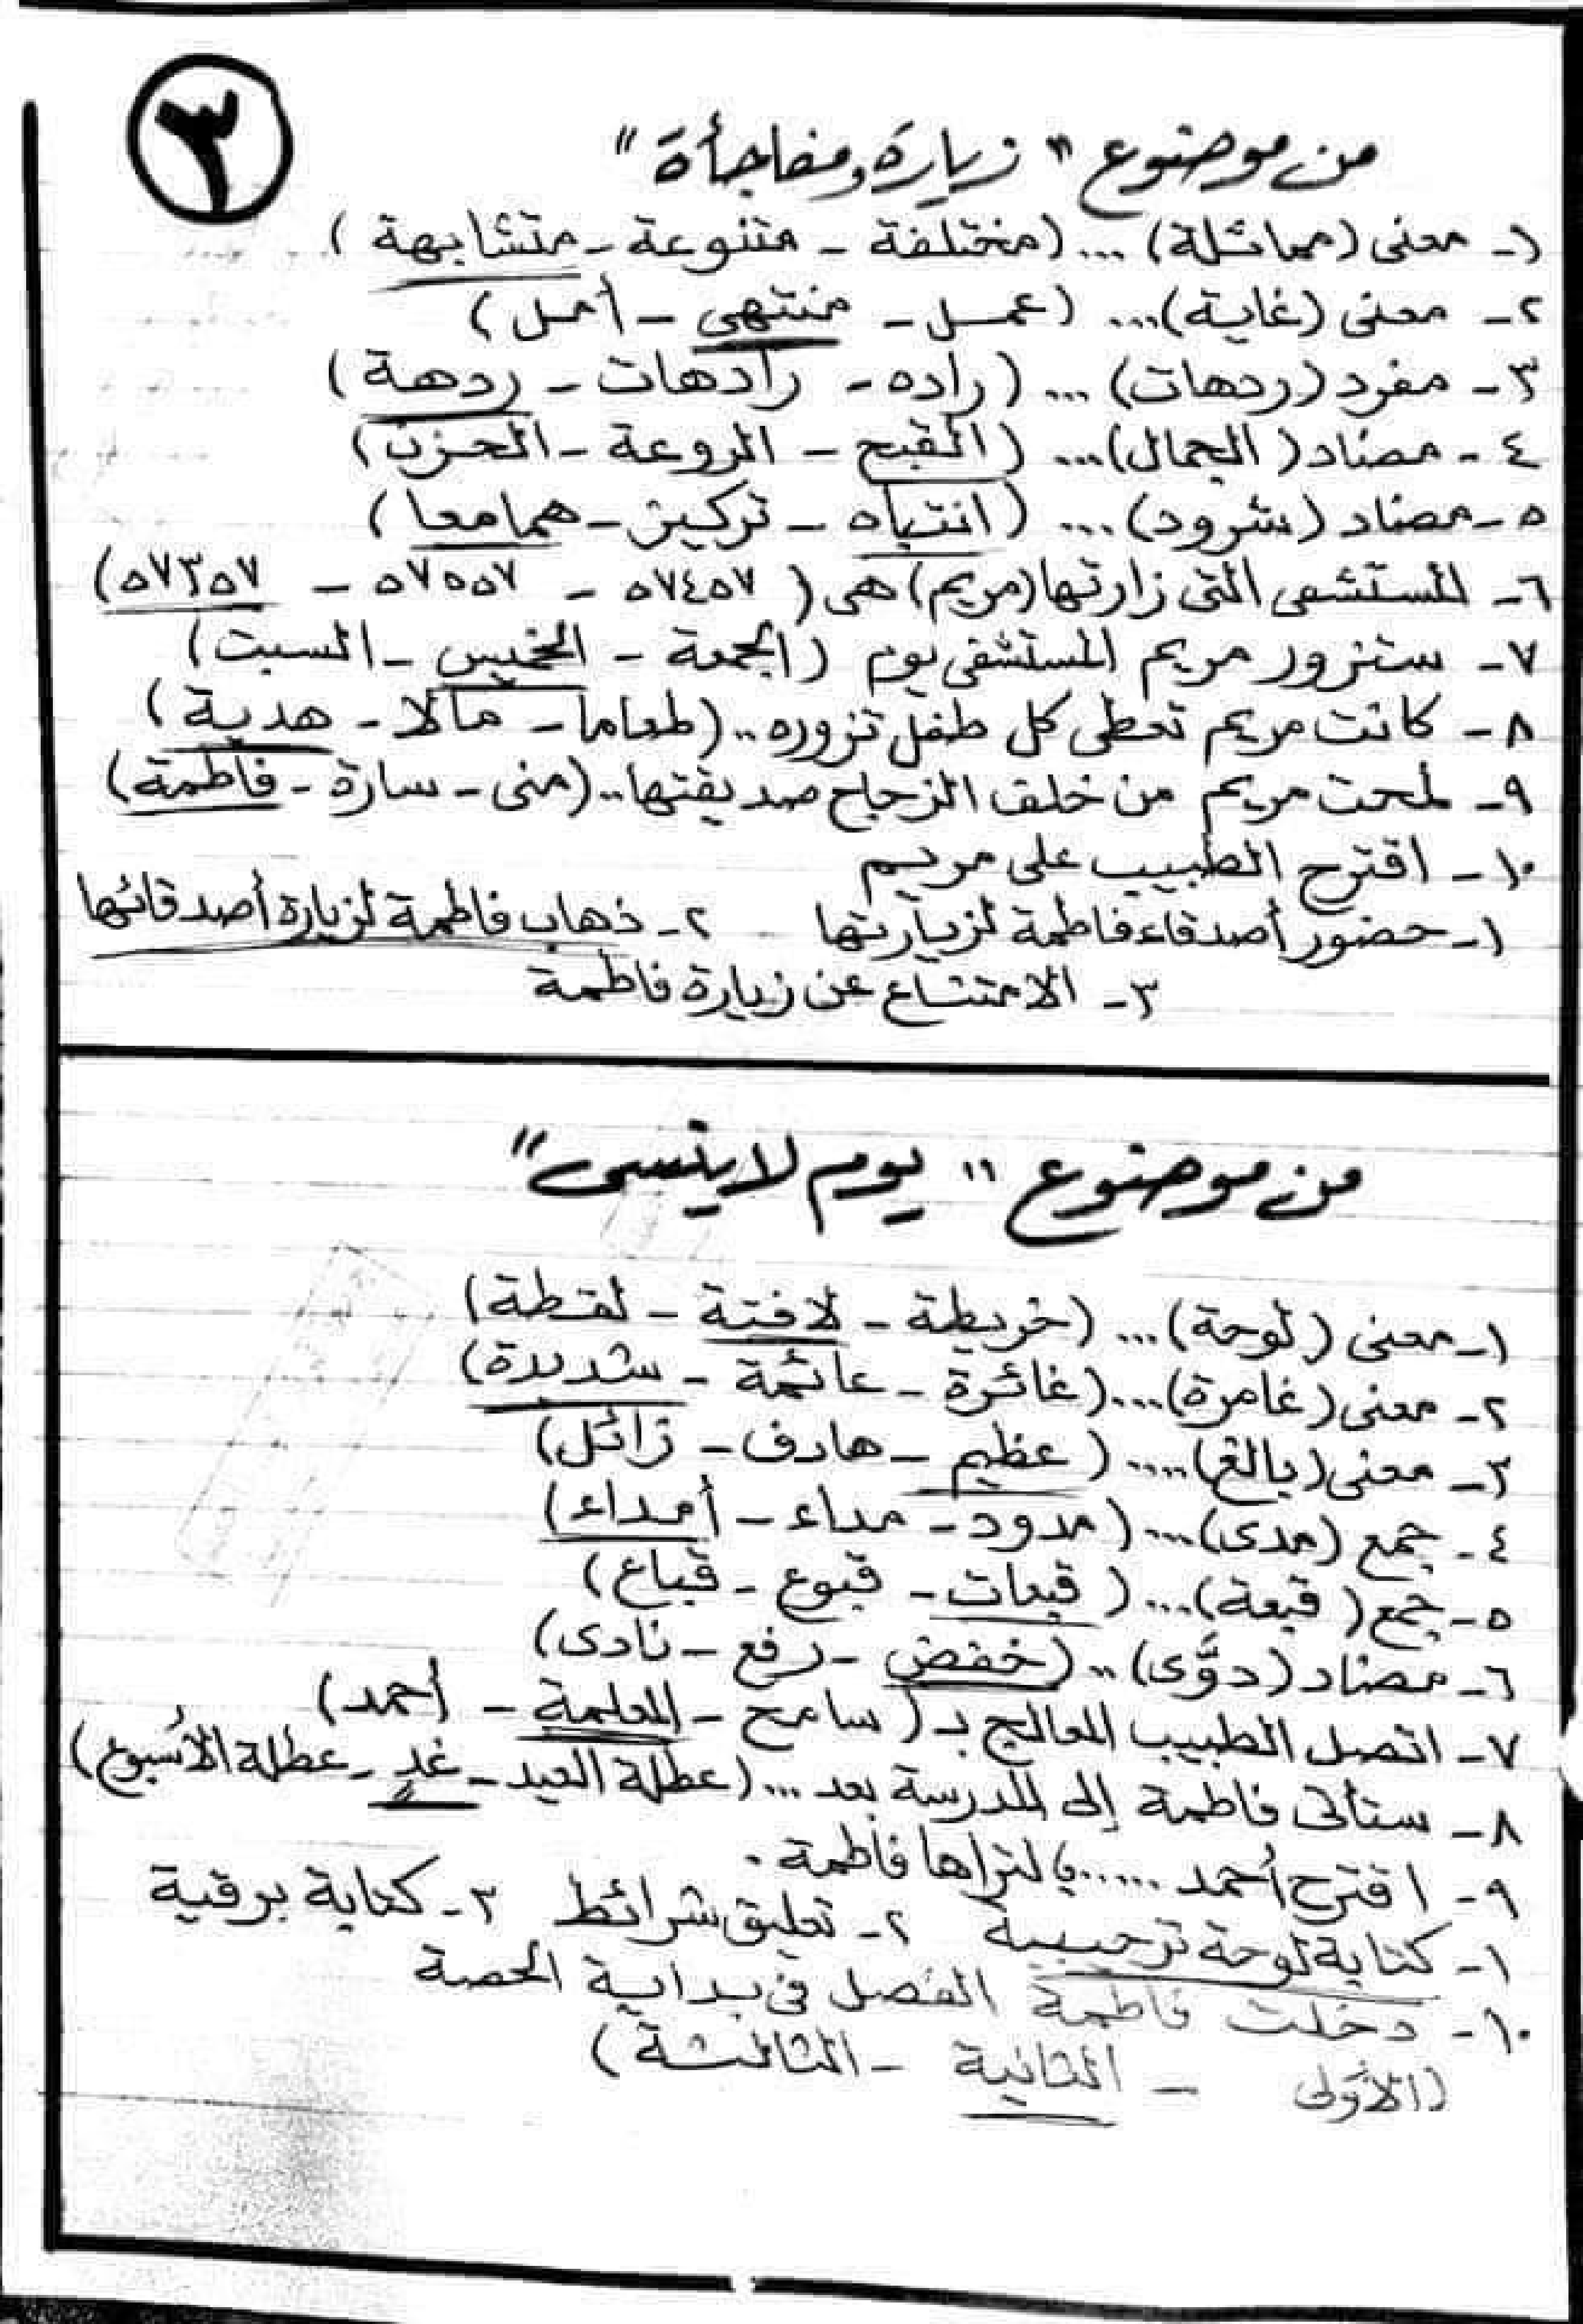 ٣
من موضوع " زيارة ومفاجأة "
١- معنى (مماثلة) ... (مختلفة - متنوعة - متشابهة )
٢- معنى (غاية) ... (عمل - منتهى - أمل )
٣- مفرد (ردهات) ... (راده - رادهات - ردهة )
٤- مضاد ( الجمال) ... (القبح - الروعة - الحزن )
٥- مضاد (شرود) ... (انتباه - تركيز - هما معا )
٦- المستشفى التى زارتها (مريم) هى ( ٥٧٤٥٧ - ٥٧٥٥٧ - ٥٧٣٥٧)
٧- ستزور مريم المستشفى يوم (الجمعة - الخميس - السبت )
٨- كانت مريم تعطى كل طفل تزوره .. (طعاما - مالا - هدية )
٩- لمحت مريم من خلف الزجاج صديقتها .. (منى - سارة - فاطمة )
١٠- اقترح الطبيب على مريم
١- حضور أصدقاء فاطمة لزيارتها ٢- ذهاب فاطمة لزيارة أصدقائها
٣- الامتناع عن زيارة فاطمة
من موضوع " يوم لا ينسى "
١- معنى (لوحة) ... (خريطة - لافتة - لقطة)
٢- معنى (غامرة) .... (غائرة - عائمة - شديدة)
٣- معنى (بالغ) ..... (عظيم - هادف - زائل)
٤- جمع (مدى) .... (مدود - مداء - أمداء)
٥- جمع ( قبعة) .... ( قبعات - قبوع - قباع)
٦- مضاد (دوَّى) .. (خفض - رفع - نادى)
٧- اتصل الطبيب المعالج بـ ( سامح - المعلمة - أحمد)
٨- ستأتى فاطمة إلى المدرسة بعد ... (عطلة العيد - غدٍ - عطلة الأسبوع)
٩- اقترح أحمد ..... لتراها فاطمة .
١- كتابة لوحة ترحيبية ٢- تعليق شرائط ٣- كتابة برقية
١٠- دخلت فاطمة الفصل فى بداية الحصة
(الأولى - الثانية - الثالثة )